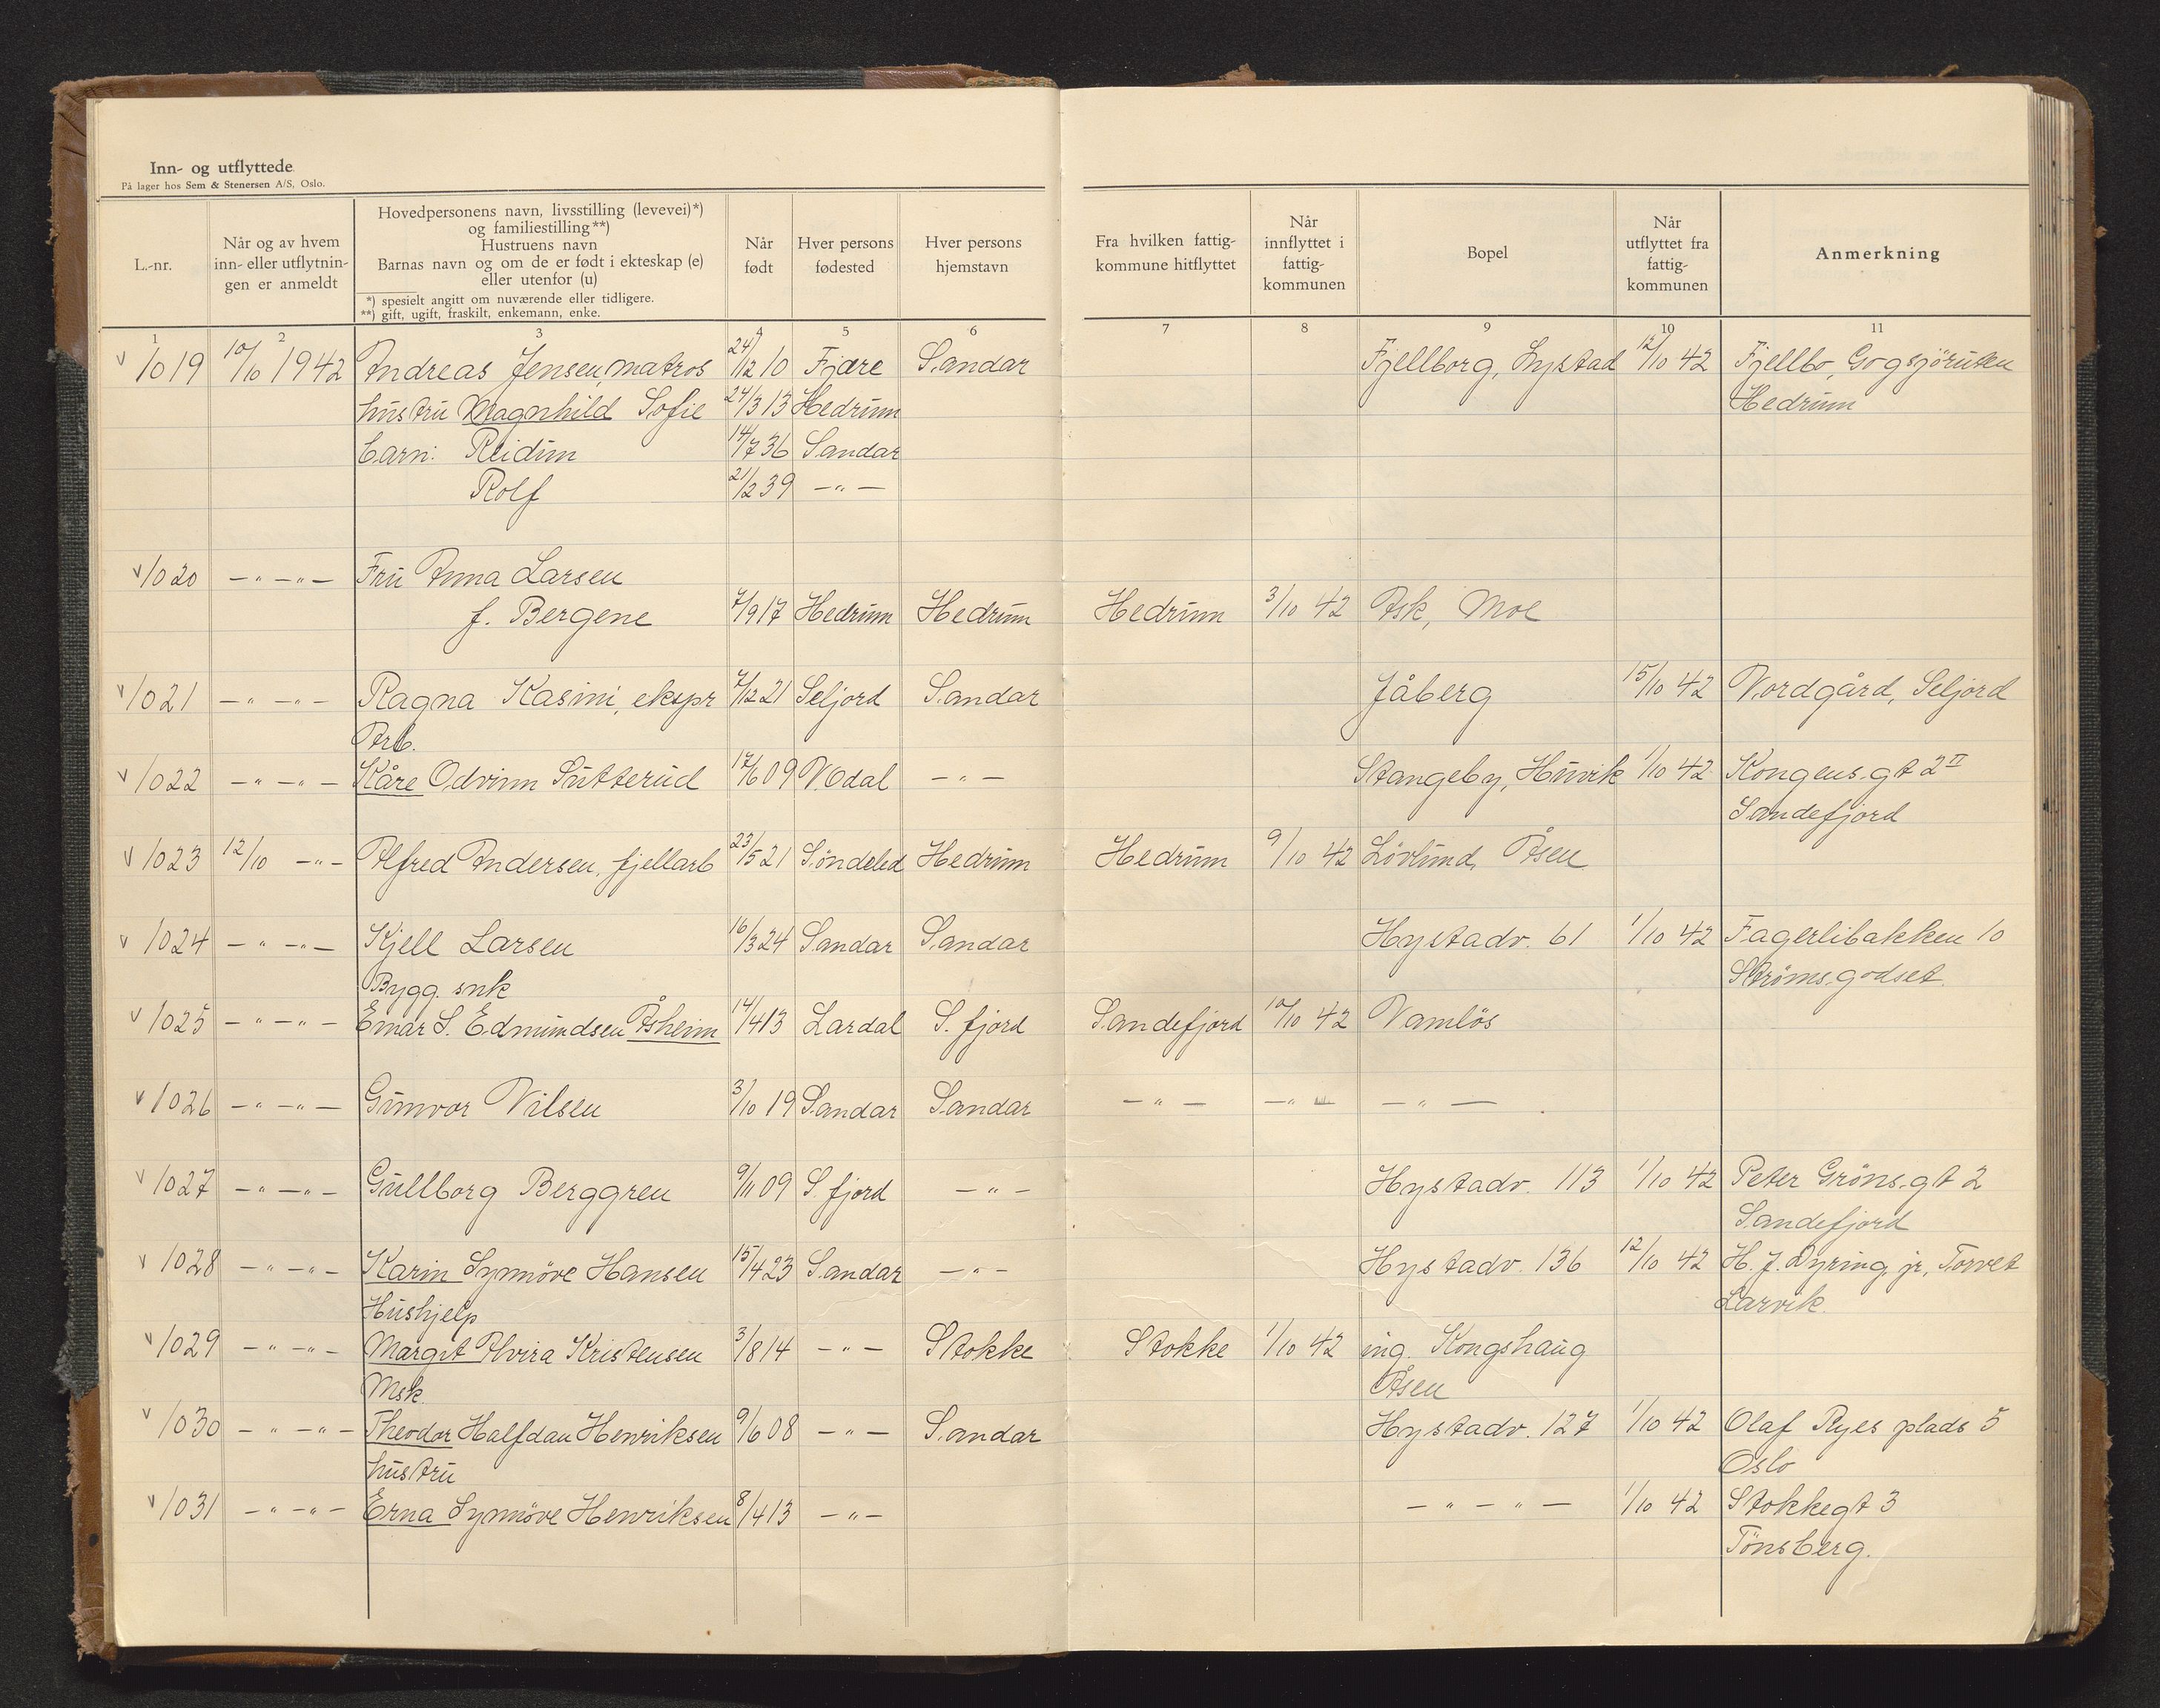 Inn- og utflyttede
På lager hos Sem & Stenersen A/S, Oslo.
L.-nr.
Når og av hvem
inn- eller utflytnin-
gen er anmeldt
Hovedpersonens navn, livsstilling (levevei)*)
og familiestilling**)
Hustruens navn
Barnas navn og om de er født i ekteskap (e)
eller utenfor (u)
*) spesielt angitt om nuværende eller tidligere.
**) gift, ugift, fraskilt, enkemann, enke.
Når
født
Hver persons
fødested
Hver persons
hjemstavn
Fra hvilken fattig-
kommune hitflyttet
Når
innflyttet i
fattig-
kommunen
Bopel
Når
utflyttet fra
fattig-
kommunen
Anmerkning
1 2 3 4 5 6 7 8 9 10 11
v 1019 10/10 1942 Andreas Jensen, matros 24/12 10 Fjære Sandar Fjellborg, Hystad 12/10 42 Fjellbo, Gogsjöruten
hustru Magnhild Sofie 24/3 13 Hedrum Hedrum
barn: Reidun 14/7 36 Sandar
Rolf 21/2 39 — " —
v 1020 — " — " — Fru Anna Larsen
f. Bergene 7/9 17 Hedrum Hedrum Hedrum 3/10 42 Ask, Moe
v 1021 — " — " — Ragna Kasini, ekspr 7/12 21 Seljord Sandar Jåberg 15/10 42 Nordgård, Seljord
Arb.
v 1022 — " — " — Kåre Odvinn Sutterud 17/6 09 N.Odal — " — Stangeby, Huvik 1/10 42 Kongens.gt 2 II
Sandefjord
v 1023 12/10 — " — Alfred Andersen, fjellarb 23/5 21 Söndeled Hedrum Hedrum 9/10 42 Lövlund, Åsen
v 1024 — " — " — Kjell Larsen 16/3 24 Sandar Sandar Hystadv. 61 1/10 42 Fagerlibakken 10
Bygg. snk Strøms.godset
v 1025 — " — " — Einar S. Edmundsen Åsheim 14/4 13 Lardal S. fjord Sandefjord 10/10 42 Namlös
v 1026 — " — " — Gunvor Nilsen 3/10 19 Sandar Sandar — " — — " — — " —
v 1027 — " — " — Gullborg Berggren 9/11 09 S. fjord — " — Hystadv. 113 1/10 42 Peter Gröns.gt 2
Sandefjord
v 1028 — " — " — Karin Synnöve Hansen 15/4 23 Sandar — " — Hystadv. 136 12/10 42 H. J. Dyring jr, Torvet
Hushjelp Larvik.
v 1029 — " — " — Margit Alvira Kristensen 3/8 14 — " — Stokke Stokke 1/10 42 ing. Kongshaug
Msk. Åsen
v 1030 — " — " — Theodor Halfdan Henriksen 9/6 08 — " — Sandar Hystadv. 127 1/10 42 Olaf Ryes plads 5
hustru Oslo
v 1031 — " — " — Erna Synnöve Henriksen 8/4 13 — " — — " — " — 1/10 42 Stokkegt 3
Tönsberg.